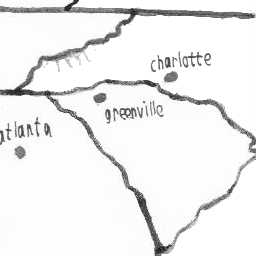 charlotte
greenville
atlanta